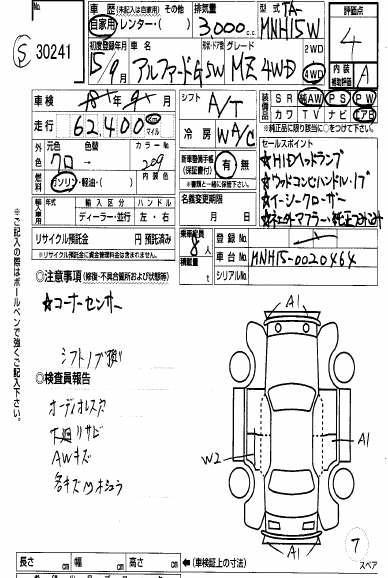 S 30241
車歴 (未記入は自家用) その他
自家用・レンター・( )
排気量
3,000 cc
型式 TA-
MNH15W
評価点
4
初度登録年月
15/9月
車名
アルファードG 5W
グレード
MZ 4WD
2WD
4WD
内装補助評価
A
車検
年 月
走行
62,400 km マイル
シフト
A/T
冷房
W A/C
装備品
SR 純AW PS PW
カワ TV ナビ エアB
※純正品に限り該当に○をつけて下さい。
外色
元色 色替 カラーNo
クロ → 209
燃料
ガソリン・軽油・( )
内装色
新車整備手帳
(保証書付)
有・無
※書類と一緒に保管して下さい。
セールスポイント
★HIDヘッドランプ
★ウッドコンビハンドル・ノブ
★イージークローザー
輸入車用
年式 輸入区分 ハンドル
ディーラー・並行 左・右
名義変更期限
月 日
リサイクル預託金 円 預託済み
※リサイクル預託金に資金管理料金は含まれません。
乗車定員
8人
積載量
t
登録No.
車台No. MNH15-0020464
シリアルNo.
◎注意事項 (修復・不具合箇所および状態等)
★コーナーセンサー
シフトノブ
◎検査員報告
オーディオレス
下廻りサビ
AWキズ
※ご記入の際はボールペンで強くご記入下さい。
A1
A1
W2
A1
7
スペア
長さ cm 幅 cm 高さ cm ←(車検証上の寸法)